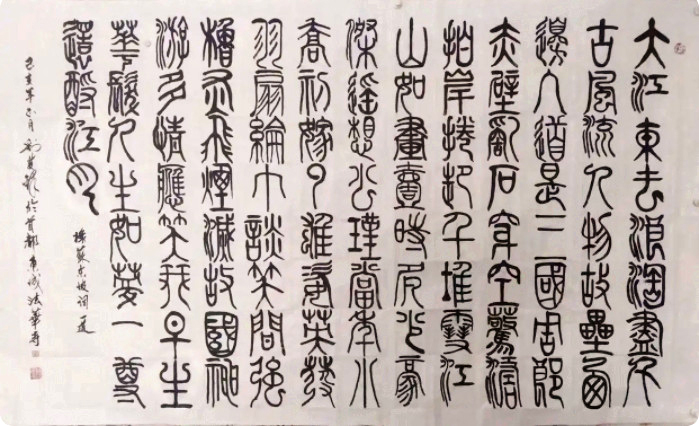 大江東去浪淘盡千
古風流人物故壘西
邊人道是三國周郎
赤壁亂石穿空驚濤
拍岸捲起千堆雪江
山如畫壹時多少豪
傑遙想公瑾當年小
喬初嫁了雄姿英發
羽扇綸巾談笑間強
櫓灰飛煙滅故國神
游多情應笑我早生
華髮人生如夢一尊
還酹江月
蘇東坡詞
己亥年 月 於首都京城法華寺